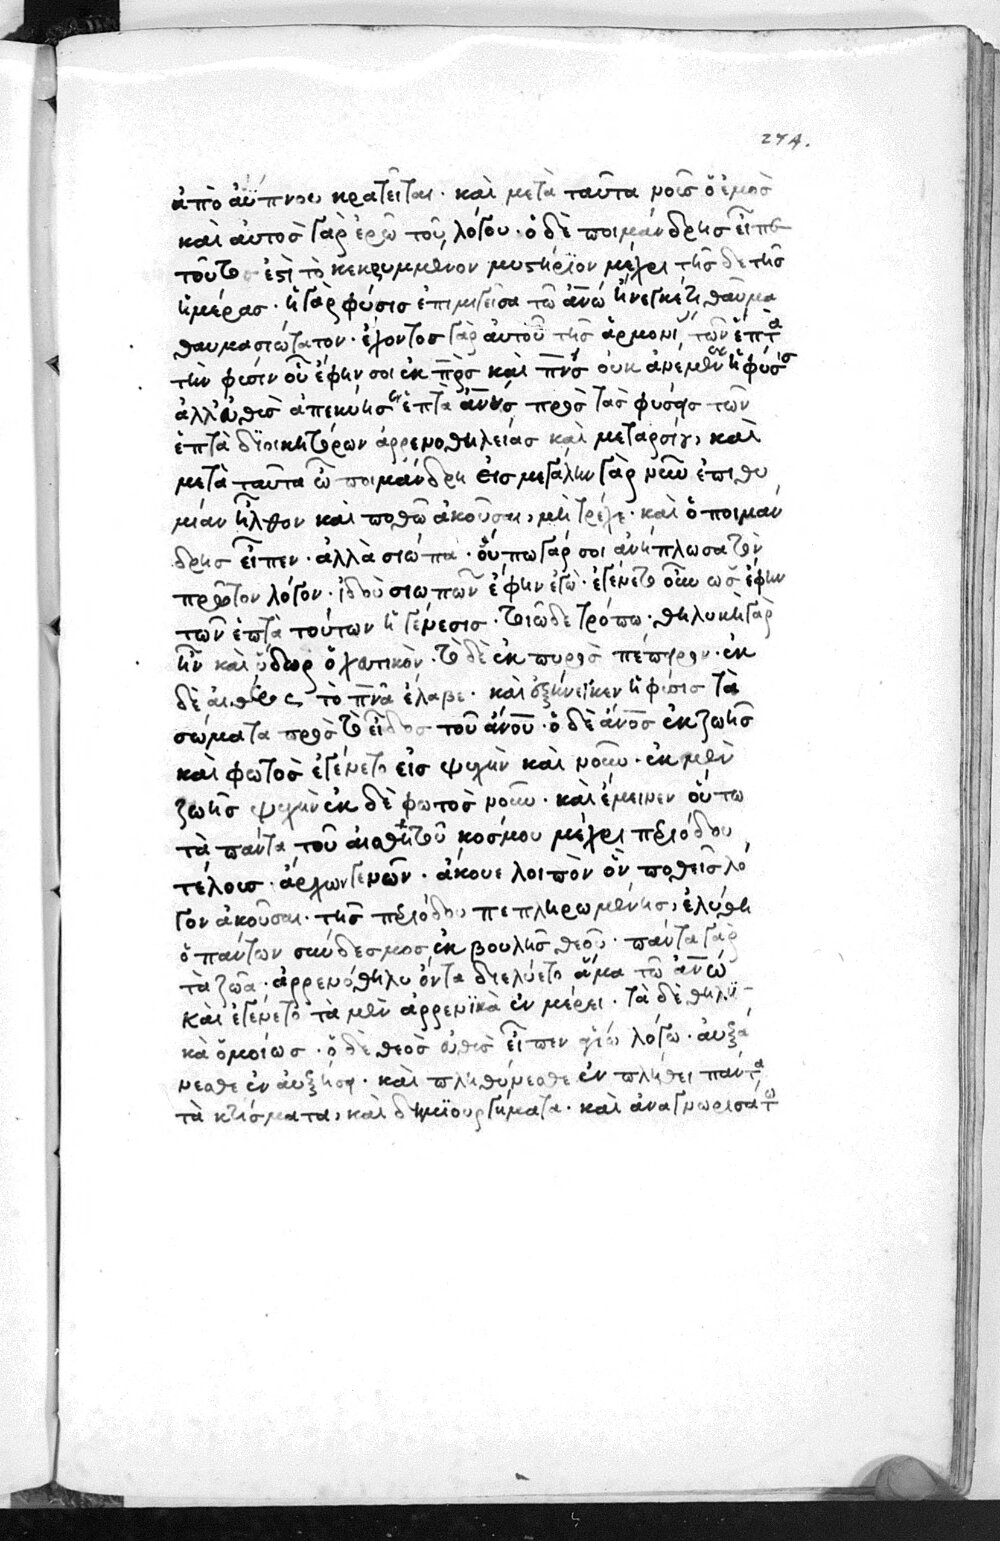 274.
ἀπὸ ἀΰπνου κρατεῖται · καὶ μετὰ ταῦτα νοῦσ ὁ ἐμὸσ
καὶ αὐτοσ γὰρ ἐρῶ τοῦ λόγου · ὁ δὲ ποιμάνδρησ εἶπε
τοῦτο ἐστὶ τὸ κεκρυμμένον μυστήριον μέχρι τῆσ δε τῆσ
ἡμέρασ · ἡ γὰρ φύσισ ἐπιμιγεῖσα τῶ ἀν̅ω ἤνεγκέ τι θαῦμα
θαυμασιώτατον · ἔχοντοσ γὰρ αὐτοῦ τῆσ ἁρμονί τῶν ἑπτὰ
τὴν φύσιν οὗ ἔφην σοι ἐκ π̅ρ̅σ καὶ π̅ν̅σ οὐκ ἀνέμενεν ἡ φύσισ
ἀλλ' εὐθὺσ ἀπεκύησεν ἑπτὰ ἀν̅ν̅σ πρὸσ τὰσ φύσεισ τῶν
ἑπτὰ διοικητόρων ἀρρενοθηλείασ καὶ μεταρσίουσ, καὶ
μετὰ ταῦτα ὦ ποιμάνδρη εἰσ μεγάλην γὰρ νῦν ἐπιθυ
μίαν ἦλθον καὶ ποθῶ ἀκοῦσαι, μὴ τρέχε · καὶ ὁ ποιμάν
δρησ εἶπεν · ἀλλὰ σιώπα · οὔπω γάρ σοι ἀνήπλωσα τὸν
πρῶτον λόγον · ἰδοὺ σιωπῶν ἔφην ἐγὼ · ἐγένετο οὖν ωσ ἔφην
τῶν ἑπτὰ τούτων ἡ γένεσισ · τοιῶδε τρόπω · θηλυκὴ γὰρ
ἦν καὶ ὕδωρ ὀχευτικὸν · τὸ δὲ ἐκ πυρὸσ πέπειρον · ἐκ
δὲ αἰθέροσ τὸ π̅ν̅α ἔλαβε · καὶ ἐξήνεγκεν ἡ φύσισ τὰ
σώματα πρὸσ τὸ εἶδοσ τοῦ ἀν̅ο̅υ · ὁ δὲ ἄν̅ο̅σ ἐκ ζωῆσ
καὶ φωτὸσ ἐγένετο εἰσ ψυχὴν καὶ νοῦν · ἐκ μὲν
ζωῆσ ψυχὴν ἐκ δὲ φωτὸσ νοῦν · καὶ ἔμεινεν οὕτω
τὰ πάντα τοῦ αἰσθητοῦ κοσμου μέχρι περιόδου
τέλουσ · ἀρχῶν γενῶν · ἄκουε λοιπὸν ὃν ποθεῖσ λό
γον ἀκοῦσαι · τῆσ περιόδου πεπληρωμένησ, ἐλύθη
ὁ πάντων σύνδεσμοσ ἐκ βουλῆσ θεοῦ · πάντα γὰρ
τὰ ζῶα · ἀρρενόθηλυ ὄντα διελύετο ἅμα τῶ ἀν̅ω
καὶ ἐγένετο τὰ μὲν ἀρρενϊκὰ ἐν μέρει · τὰ δὲ θηλυ-
κὰ ὁμοίωσ · ὁ δὲ θεὸσ εὐθὺσ εἶπεν ἁγίω λόγω · αὐξά
νεσθε ἐν αὐξήσει · καὶ πληθύνεσθε ἐν πλήθει πάντα
τὰ κτίσματα, καὶ δημιουργήματα · καὶ ἀναγνωρισάτω